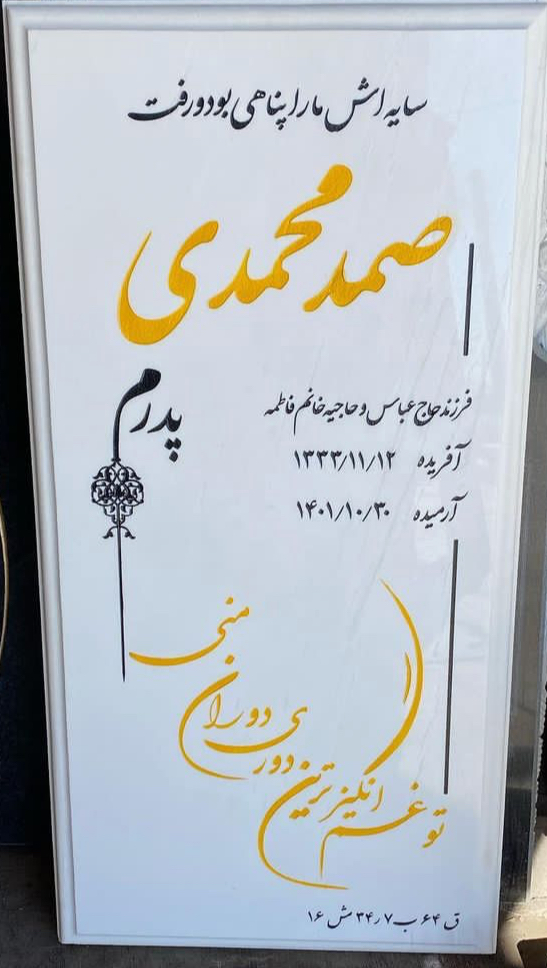 سایه اش ما را پناهی بود و رفت
صمد محمدی
فرزند حاج عباس و حاجیه خانم فاطمه
پدرم
آفریده ۱۳۳۳/۱۱/۱۲
آرمیده ۱۴۰۱/۱۰/۳۰
تو غم انگیزترین
دوری دوران
منی
ق ۶۴ ب ۷ ر ۳۴ ش ۱۶